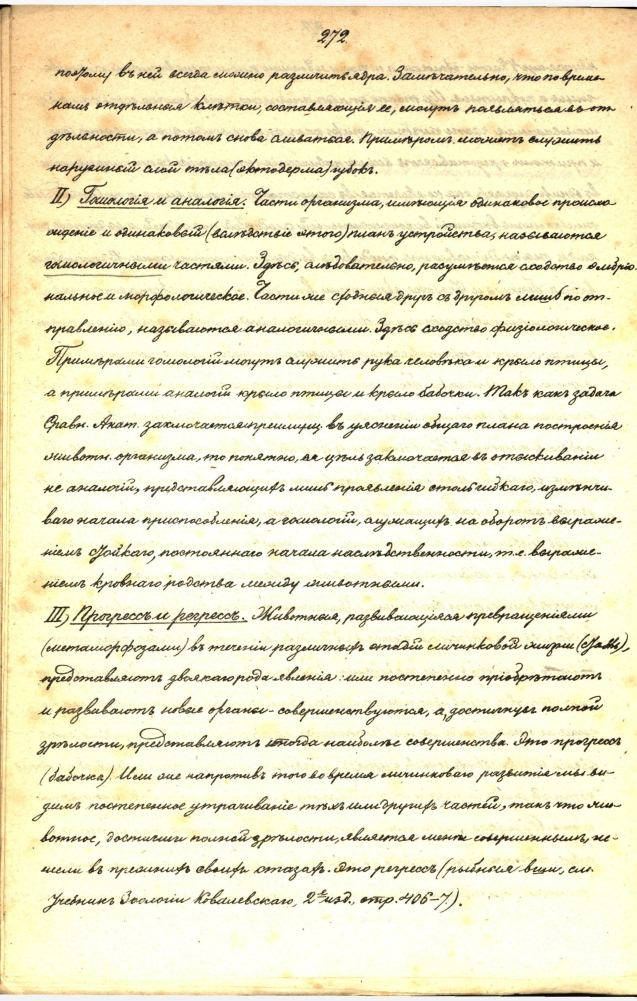 272.
поэтому въ ней всегда можно различить ядра. Замѣчательно, что по време-
намъ отдѣльныя клѣтки, составляющія ее, могутъ появляться въ от-
дѣльности, а потомъ снова сливаться. Примѣромъ можетъ служить
наружный слой тѣла (эктодерма) губокъ.
II) Гомологія и аналогія. Части организма, имѣющія одинаковое происхо-
ждение и одинаковый (вслѣдствіе этого) планъ устройства, называются
гомологичными частями. Здѣсь, слѣдовательно, разумѣется сходство эмбріо-
нальное и морфологическое. Части же сродныя другъ съ другомъ лишь по от-
правленію, называются аналогичными. Здѣсь сходство физіологическое.
Примѣрами гомологій могутъ служить рука человѣка и крыло птицы,
а примѣрами аналогій крыло птицы и крыло бабочки. Такъ какъ задача
Сравн. Анат. заключается преимущ. въ уясненіи общаго плана построенія
животн. организма, то понятно, ея цѣль заключается въ отыскиваніи
не аналогій, представляющихъ лишь проявленія столь гибкаго, измѣнчи-
ваго начала приспособленія, а гомологій, служащихъ на оборотъ выраже-
ніемъ стойкаго, постояннаго начала наслѣдственности, т.е. выраже-
ніемъ кровнаго родства между животными.
III) Прогрессъ и регрессъ. Животныя, развивающіяся превращеніями
(метаморфозами) въ теченіи различныхъ стадій личинковой жизни
представляютъ двоякаго рода явленія: или постепенно пріобрѣтаютъ
и развиваютъ новые органы - совершенствуются, а, достигнувъ полной
зрѣлости, представляютъ тогда наиболѣе совершенства. Это прогрессъ
(бабочка). Или же напротивъ того во время личинковаго развитія мы ви-
димъ постепенное утрачиваніе тѣхъ или другихъ частей, такъ что жи-
вотное, достигши полной зрѣлости, является менѣе совершеннымъ, не-
жели въ прежнихъ своихъ фазахъ. Это регрессъ (рыбныя вши, см.
Учебникъ Зоологіи Ковалевскаго, 2е изд., стр. 406-7.).